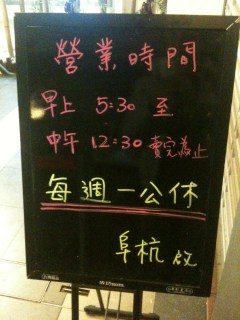 營業時間
早上 5:30 至
中午 12:30 賣完為止
每週一公休
阜杭 啟